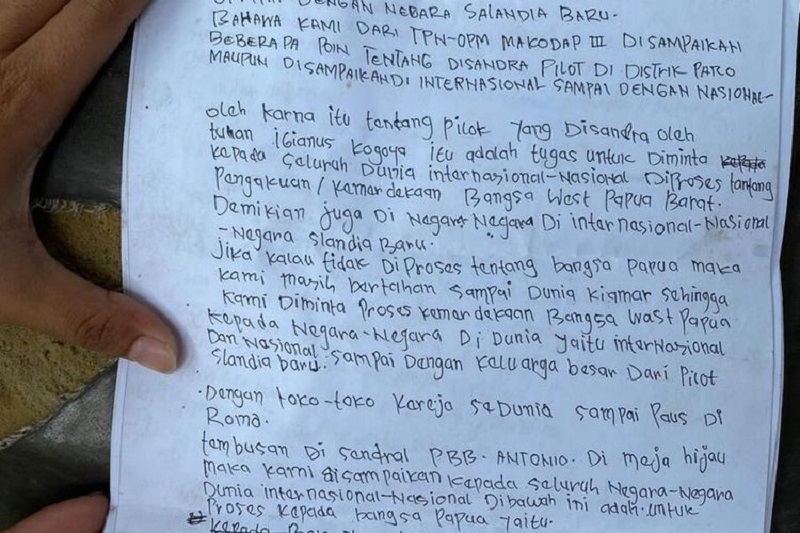 DENGAN NEGARA SALANDIA BARU.
BAHAWA KAMI DARI TPN-OPM MAKODAP III DISAMPAIKAN
BEBERAPA POIN TENTANG DISANDRA PILOT DI DISTRIK PARO
MAUPUN DISAMPAIKANDI INTERNASIONAL SAMPAI DENGAN NASIONAL-
oleh karna itu tentang pilok yang Disandra oleh
tuhan iGianus kogoya itu adalah tugas untuk Diminta
kepada seluruh Dunia internasional-Nasional Diproses tantang
pengakuan / kemardekaan Bangsa West Papua Barat.
Demikian juga Di Negara Negara Di internasional-Nasional
-Negara slandia Baru.
jika kalau tidak Diproses tentang bangsa papua maka
kami masih bertahan sampai Dunia kiamar sehingga
kami Diminta proses kemardekaan Bangsa wast Papua
kepada Negara-Negara Di Dunia yaitu internasional
Dan Nasional. sampai Dangan kaluarga besar Dari Picot
slandia baru.
· Dengan toko-toko Kareja seDunia sampai Paus Di
Roma.
tambusan Di sandral PBB. ANTONIO. Di maja hijau
maka kami disampaikan kapada saluruh Negara-Negara
Dunia internasional-Nasional Dibawah ini adalah untuk
proses kapada bangsa Papua yaitu.